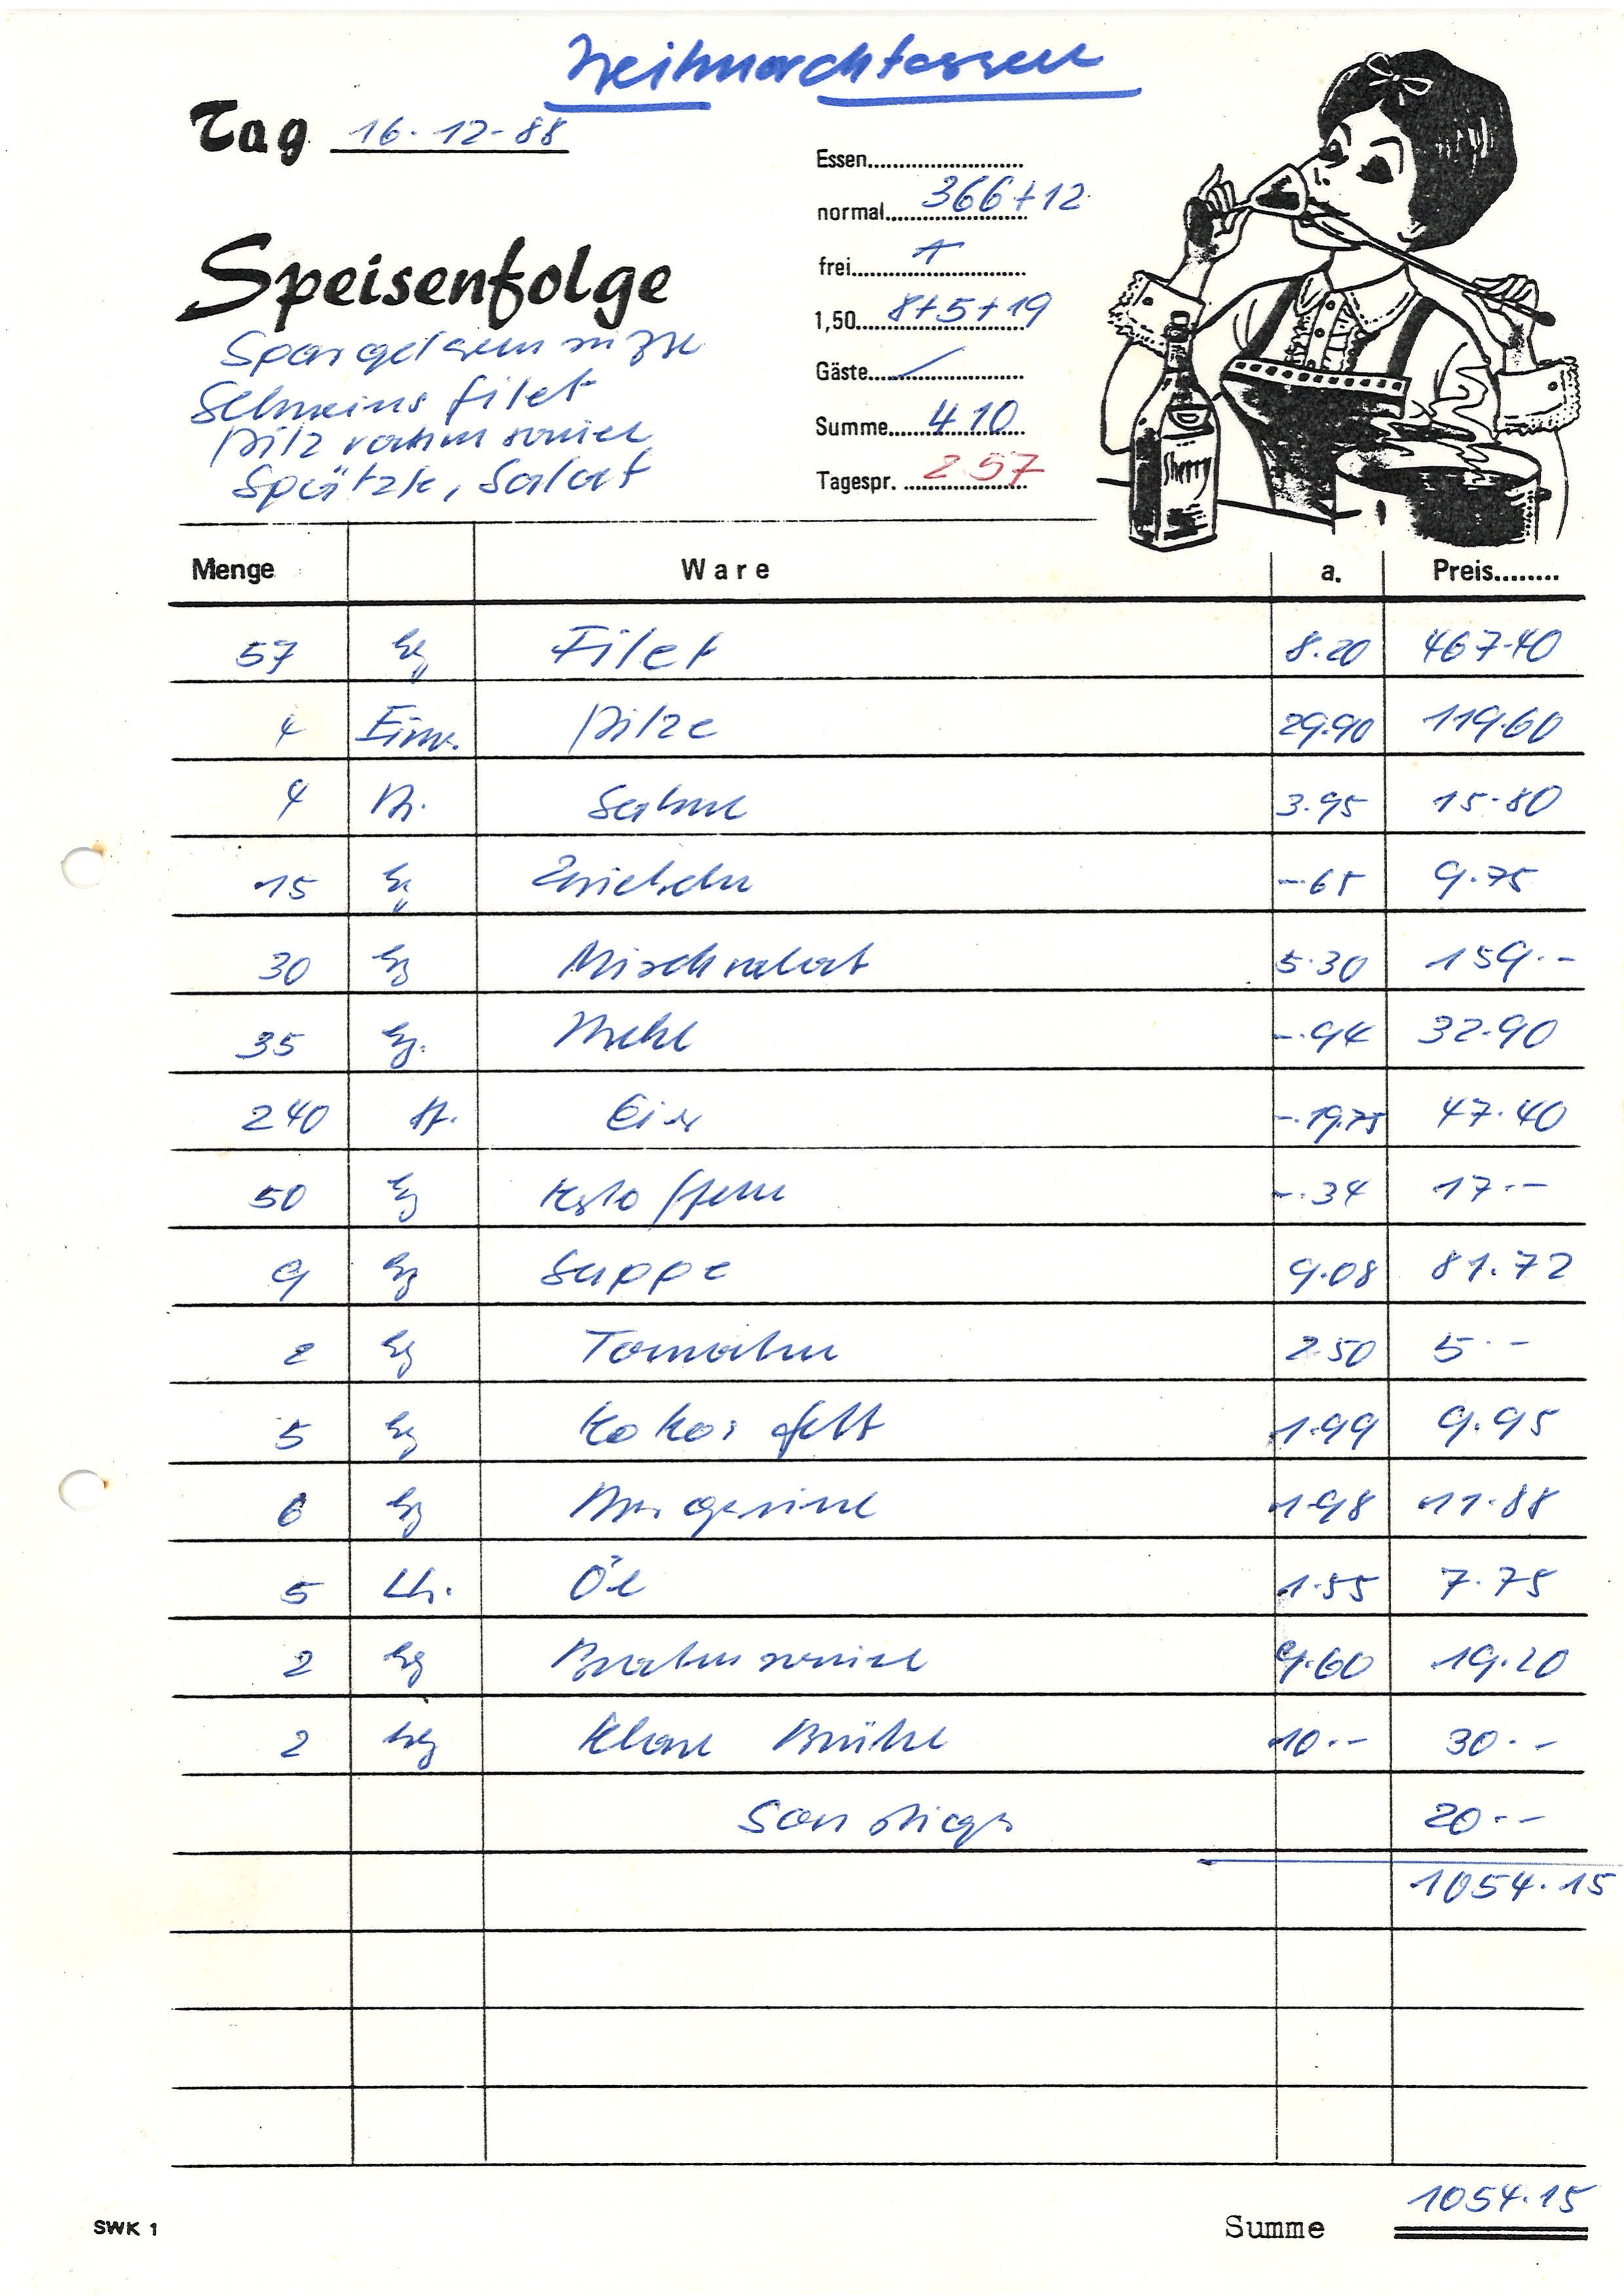 Weihnachtessen
Tag 16.12-88
Essen
normal 366+12
frei
1,50 8+5+19
Gäste
Summe 410
Tagespr. 257
Speisenfolge
Spargelcremsuppe
Schweinsfilet
Pilzrahmsauce
Spätzle, Salat
Sherry
Menge Ware a. Preis
57 kg Filet 8.20 467.40
4 Eim. Pilze 29.90 119.60
4 Sahne 3.95 15.80
15 kg Zwiebeln -.65 9.75
30 kg Mischsalat 5.30 159.-
35 kg. Mehl -.94 32.90
240 st. Eier -.19,75 47.40
50 kg Kartoffeln -.34 17.-
9 kg Suppe 9.08 81.72
2 kg Tomaten 2.50 5.-
5 kg Kokosfett 1.99 9.95
6 kg Margarine 1.98 11.88
5 Ltr. Öl 1.55 7.75
2 kg Bratensauce 9.60 19.20
2 kg Klare Brühe 10.- 30.-
Sonstiges 20.-
1054.15
SWK 1 Summe 1054.15